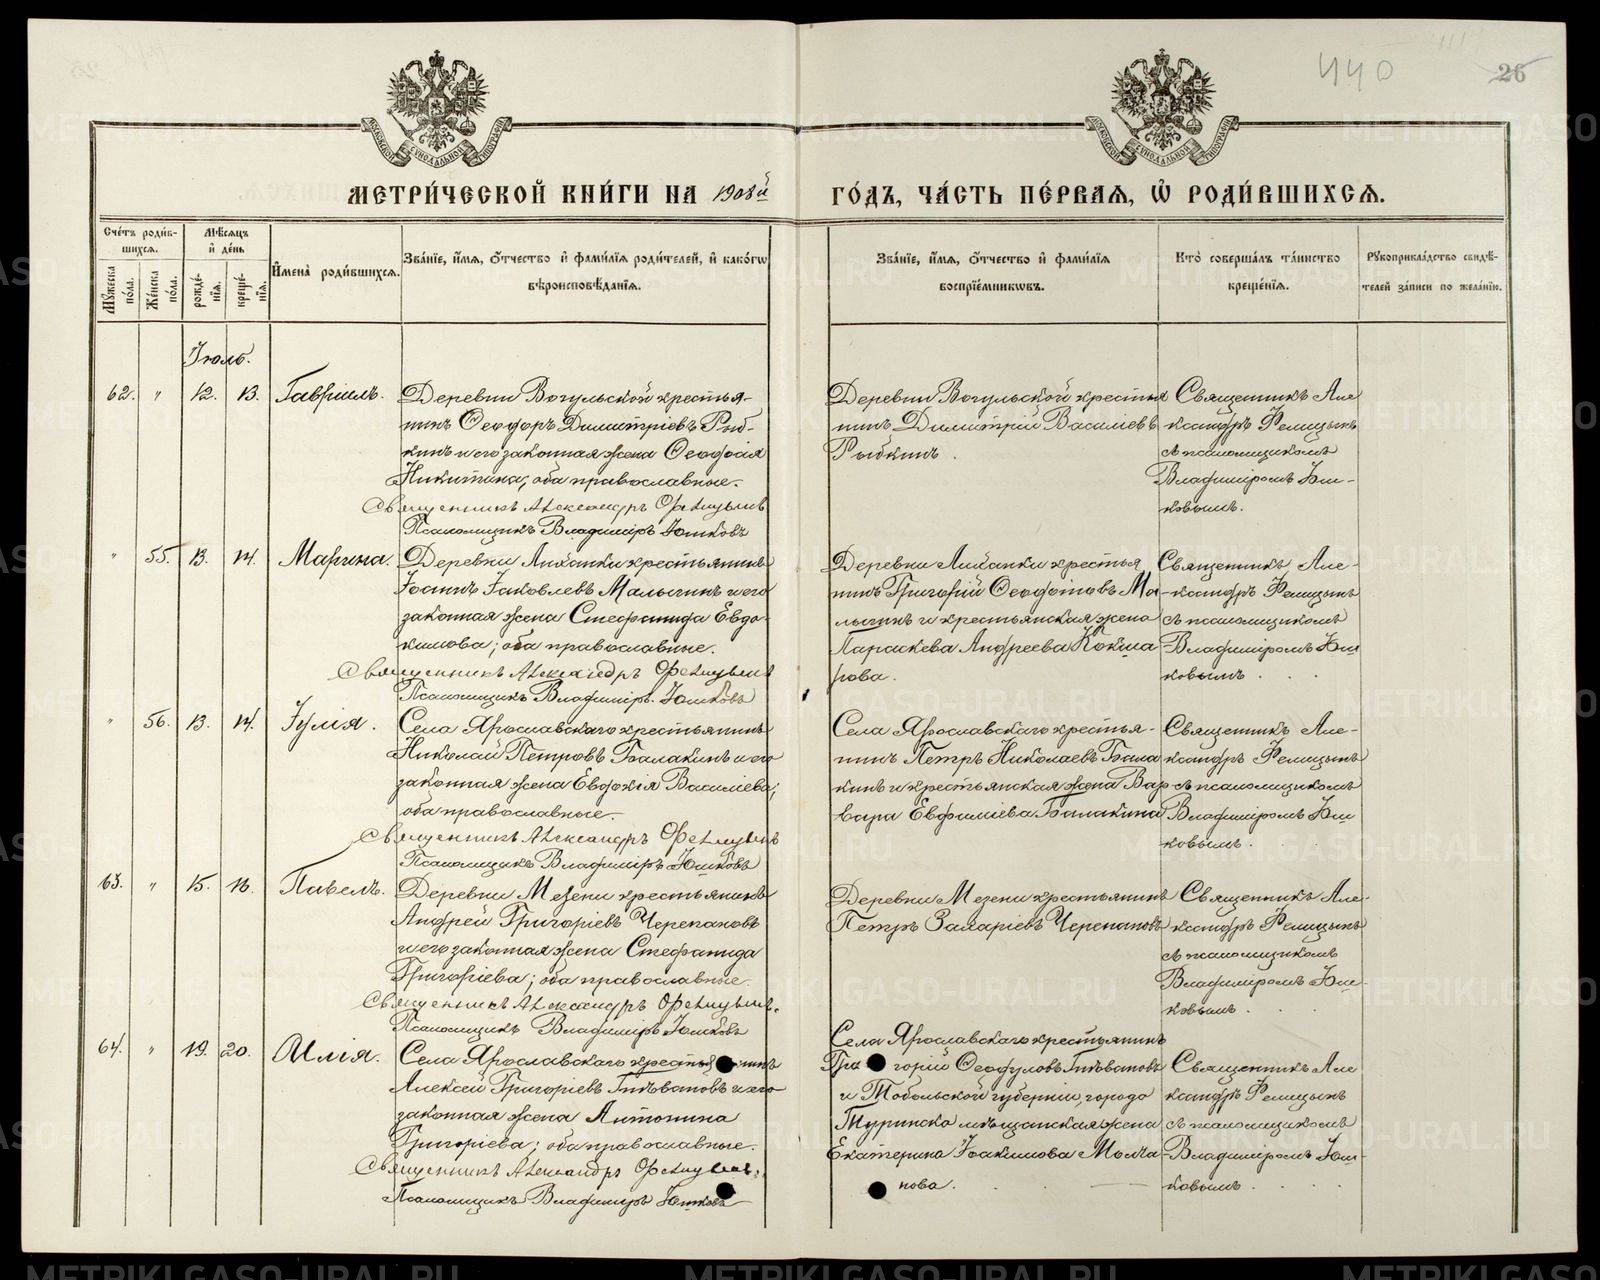 440
26
МЕТРИ́ЧЕСКОЙ КНИ́ГИ НА 1908й ГО́ДЪ, ЧА́СТЬ ПЕ́РВАЯ, Ѽ РОДИ́ВШИХСЯ.
Сче́тъ роди́в-
шихся.
Мꙋ́жеска по́ла.
Же́нска по́ла.
Мѣ́сяцъ и де́нь
рожде́нїя.
креще́нїя.
И҆мена̀ роди́вшихся.
Зва́нїе, и҆́мя, ѻ҆́тчество и҆ фами́лїя роди́телей, и҆ како́гѡ
вѣроисповѣ́данїя.
Зва́нїе, и҆́мя, ѻ҆́тчество и҆ фами́лїя
воспрїе́мникѡвъ.
Кто̀ соверша́лъ та́инство
креще́нїя.
Рꙋкоприкла́дство свидѣ́-
телей за́писи по жела́нїю.
Іюль.
62. " 12. 13. Гавріилъ.
Деревни Вогульской крестья-
нинъ Ѳеодоръ Димитріевъ Рыб-
кинъ и его законная жена Ѳеодосія
Никитина; оба православные.
Священникъ Александръ
Псаломщикъ Владиміръ Юшковъ
Деревни Вогульской крестья
нинъ Димитрій Василіевъ
Рыбкинъ.
Священникъ Але
ксандръ Фелицынъ
съ псаломщикомъ
Владиміромъ Юш-
ковымъ.
" 55. 13. 14. Марина.
Деревни Лиханки крестьянинъ
Іоаннъ Іаковлевъ Малыгинъ и его
законная жена Стефанида Евдо-
кимова; оба православные.
Священникъ Александръ
Псаломщикъ Владиміръ Юшковъ
Деревни Лиханки крестья
нинъ Григорій Ѳеофотовъ Ма
лыгинъ и крестьянская жена
Параскева Андреева Кокша
рова.
Священникъ Але-
ксандръ Фелицынъ
съ псаломщикомъ
Владиміромъ Юш
ковымъ.
" 56. 13. 14. Іулія.
Села Ярославскаго крестьянинъ
Николай Петровъ Балакинъ и его
законная жена Евдокія Василіева;
оба православные.
Священникъ Александръ
Псаломщикъ Владиміръ Юшковъ
Села Ярославскаго крестья-
нинъ Петръ Николаевъ Бала
кинъ и крестьянская жена Вар
вара Евфиміева Балакина
Священникъ Але-
ксандръ Фелицынъ
съ псаломщикомъ
Владиміромъ Юш
ковымъ.
63. " 15. 16. Павелъ.
Деревни Мезени крестьянинъ
Андрей Григоріевъ Черепановъ
и его законная жена Стефанида
Григоріева; оба православные.
Священникъ Александръ
Псаломщикъ Владиміръ Юшковъ
Деревни Мезени крестьянинъ
Петръ Захаріевъ Черепановъ
Священникъ Але-
ксандръ Фелицынъ
съ псаломщикомъ
Владиміромъ Юш-
ковымъ.
64. " 19. 20. Илія.
Села Ярославскаго крестьянинъ
Алексѣй Григоріевъ Гнѣвановъ и его
законная жена Антонина
Григоріева; оба православные.
Священникъ Александръ
Псаломщикъ Владиміръ Юшковъ
Села Ярославскаго крестьянинъ
Григорій Ѳеодуловъ Гнѣвановъ
и Тобольской губерніи, города
Туринска мѣщанская жена
Екатерина Іоакимова Молча
нова.
Священникъ Але
ксандръ Фелицынъ
съ псаломщикомъ
Владиміромъ Юш-
ковымъ.
METRIKI.GASO-URAL.RU